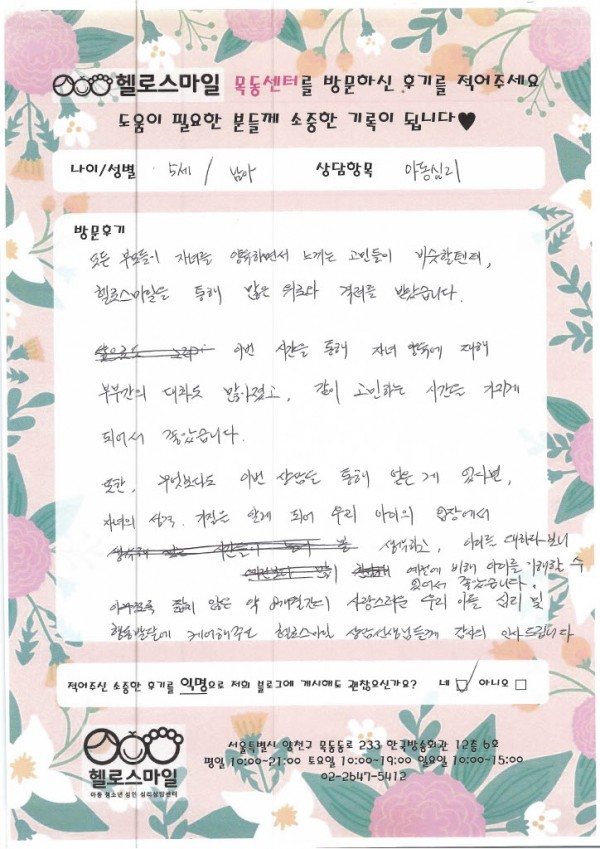 헬로스마일 목동센터를 방문하신 후기를 적어주세요
도움이 필요한 분들께 소중한 기록이 됩니다♥
나이/성별 5세 / 남아 상담항목 아동심리
방문후기
모든 부모들이 자녀를 양육하면서 느끼는 고민들이 비슷할텐데,
헬로스마일을 통해 많은 위로와 격려를 받았습니다.
이번 시간을 통해 자녀 양육에 대해
부부간의 대화도 많아졌고, 같이 고민하는 시간을 가지게
되어서 좋았습니다.
또한, 무엇보다도 이번 상담을 통해 얻은 게 있다면,
자녀의 성격, 기질은 알게 되어 우리 아이의 입장에서
생각하고, 이해를 대하다보니
예전에 비해 아이를 이해할 수
있어서 좋았습니다.
짧지 않은 약 개월간 사랑스러운 우리 아들 심리 및
활동발달에 케어해주신 헬로스마일 상담선생님들께 감사의 인사드립니다
적어주신 소중한 후기를 익명으로 저희 블로그에 게시해도 괜찮으신가요? 네 ☑ 아니요 □
헬로스마일
아동 청소년 성인 심리상담센터
서울특별시 양천구 목동동로 233 한국방송회관 12층 6호
평일 10:00~21:00 토요일 10:00~19:00 일요일 10:00~15:00
02-2647-5412